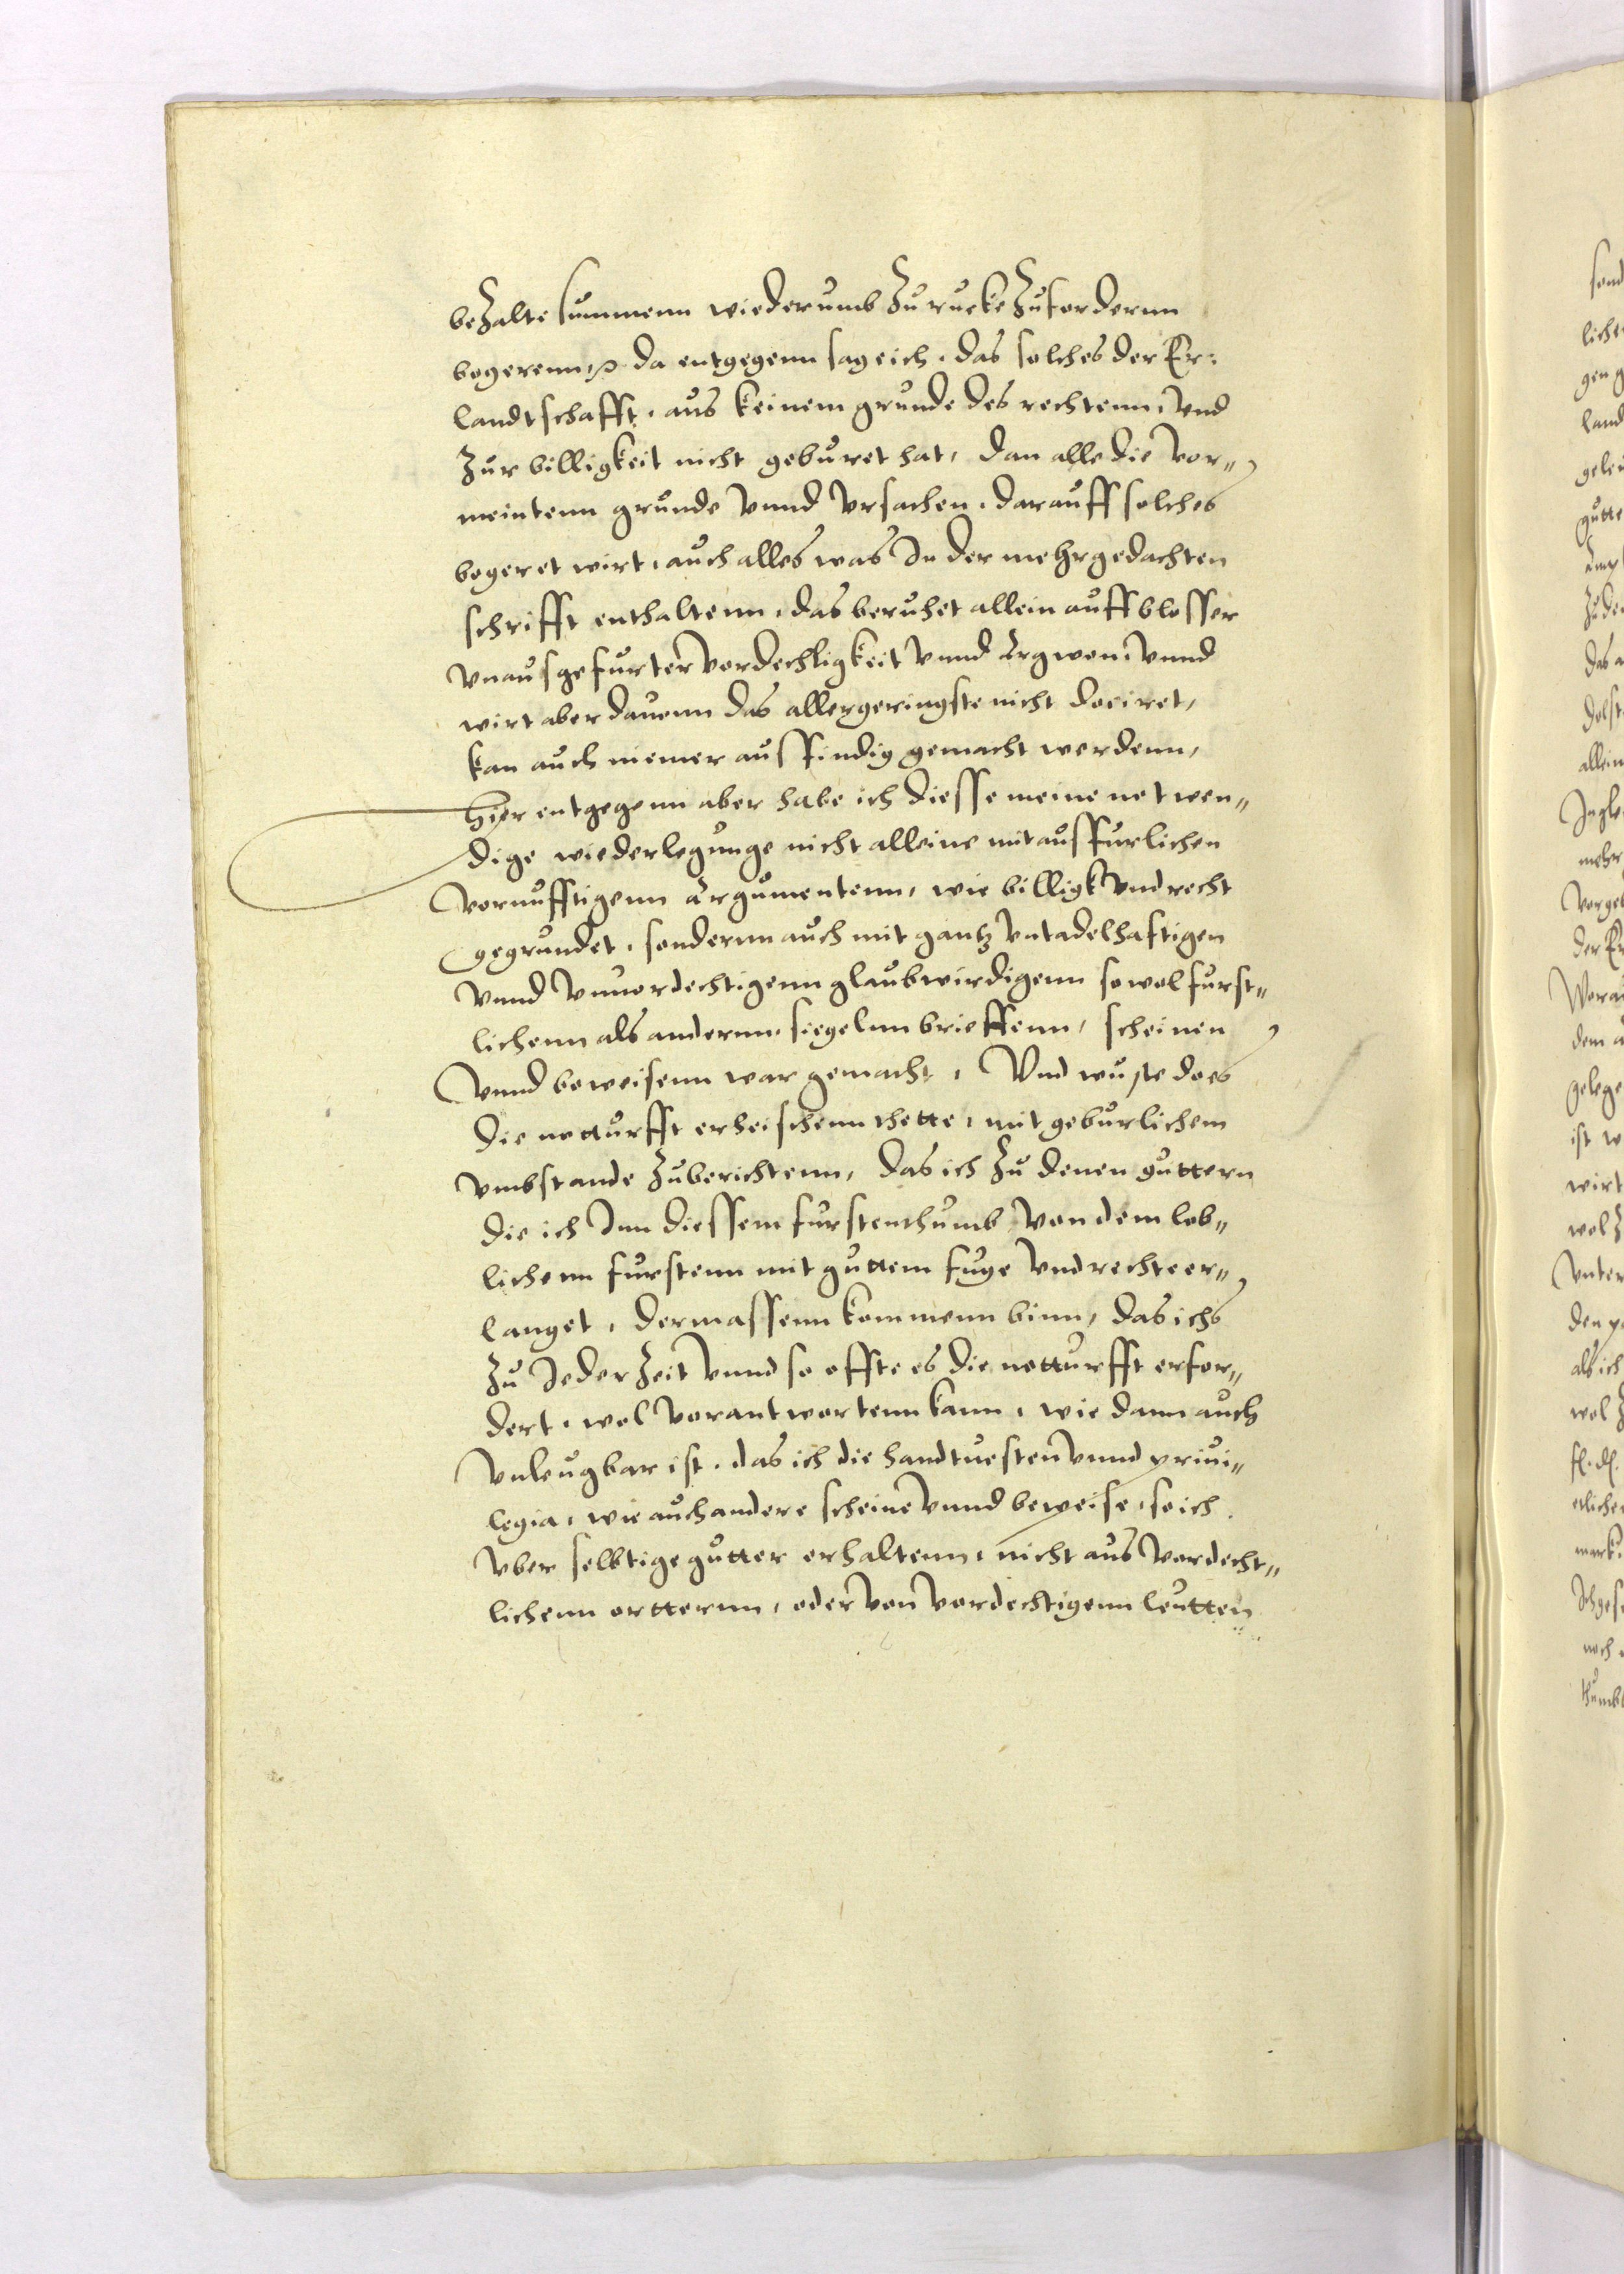 beZalte summenn wiederumb Zu rucke Zufordernn
begerenn, da entgegenn sage ich, das solches der Er:
landtschafft, aus keinem grunde des rechtenn, vnd
Zur billigkeit nicht geburet hat, dan alle die vor„
meintenn grunde vnnd vrsachen, darauff solches
begeret wirt, auch alles was In der mehrgedachten
schrifft enthaltenn, das beruhet allein auff blosser
vnausgefurter vordechtigkeit vnnd Argwon, vnnd
wirt aber dauonn das allergeringste nicht dociret,
kan auch niemer ausfindig gemacht werdenn,
Hier entgegenn aber habe ich diesse meine notwen„
dige wiederlegunge nicht alleine mit ausfurlichen
vornufftigenn Argumentenn, wie billigk vnd recht
gegrundet, sondernn auch mit gantz vntadelhafftigen
vnnd vnuordechtigenn glaubwirdigenn sowol furst„
lichenn als andernn, siegelnn brieffenn, scheinen
vnnd beweisenn war gemacht, Vnd wuste do es
die notturfft erheischenn thette, mit geburlichem
vmbstande Zuberichtenn, das ich Zu denen guttern
die ich Inn diessem furstenthumb von dem lob„
lichenn furstenn mit guttem fuge vnd rechte er„
langet, dermassenn kommenn binn, das ichs
Zu Jeder Zeit vnnd so offte es die notturfft erfor„
dert, wol vorantwortenn kann, wie dann auch
vnleugbar ist, das ich die handtuesten vnnd priui„
legia, wie auch andere scheine vnnd beweise, so ich
vber selbtige gutter erhaltenn, nicht aus vordecht„
lichenn ortternn, oder von vordechtigenn leutten